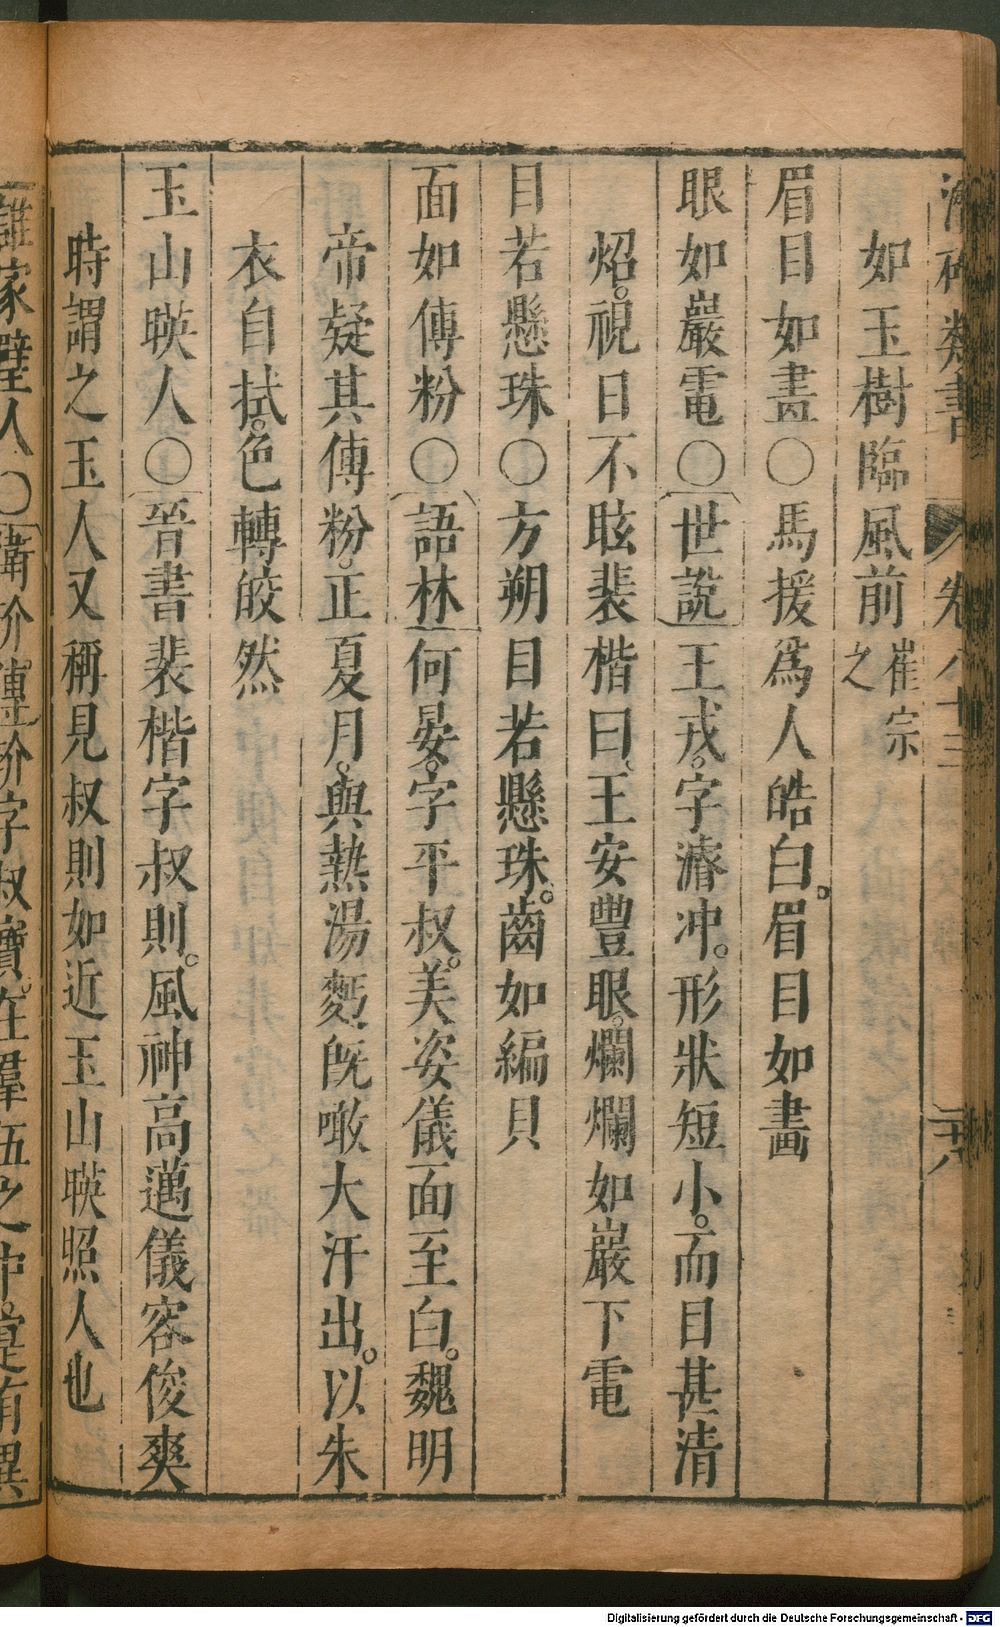 類書 卷八十三 二十八
如玉樹臨風前崔宗之
眉目如畫〇馬援爲人皓白。眉目如畫
眼如巖電〇世說王戎。字濬冲。形狀短小。而目甚清
炤。視日不眩裴楷曰。王安豐眼。爛爛如巖下電
目若懸珠〇方朔目若懸珠。齒如編貝
面如傅粉〇語林何晏。字平叔。美姿儀面至白。魏明
帝疑其傅粉。正夏月。與熱湯麪。旣噉大汗出。以朱
衣自拭。色轉皎然
玉山暎人〇晉書裴楷字叔則。風神高邁儀容俊爽
時謂之玉人又稱見叔則如近玉山暎照人也
誰家璧人〇衛玠傳玠字叔寶。在羣伍之中。寔有異
Digitalisierung gefördert durch die Deutsche Forschungsgemeinschaft - DFG